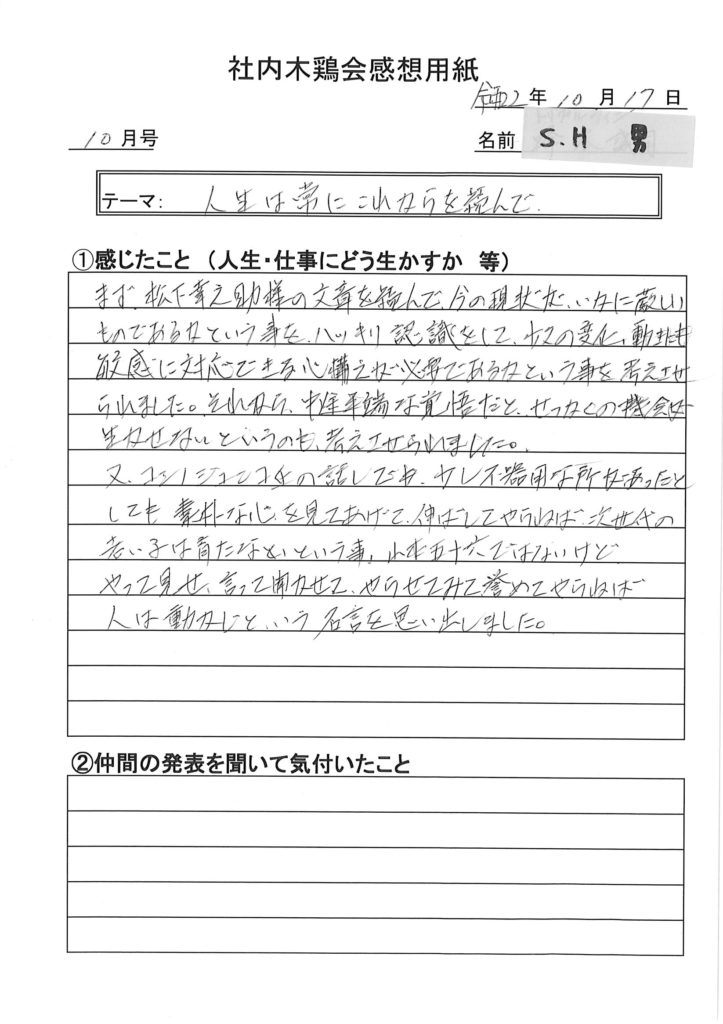 社内木鶏会感想用紙
令和2年10月17日
10月号
名前 S.H 男
テーマ: 人生は常にこれからを読んで、
①感じたこと (人生・仕事にどう生かすか 等)
まず、松下幸之助様の文章を読んで、今の現状が、いかに厳しい
ものであるかという事を、ハッキリ認識をして、少々の変化、動きにも
敏感に対応できる心構えが必要であるかという事を考えさせ
られました。それから、中途半端な覚悟だと、せっかくの機会は
生かせないというのも、考えさせられました。
又、コシノジュンコ氏の話しでわ、少し不器用な所があったと
しても素朴な心を見てあげて、伸ばしてやらねば、次世代の
若い子は育たないという事。山本五十六ではないけど
やって見せ、言って聞かせて、やらせてみて誉めてやらねば
人は動かじという名言を思い出しました。
②仲間の発表を聞いて気付いたこと